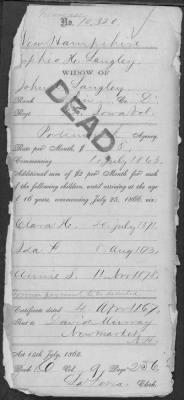 No. 10,820.
New Hampshire
Sophia H. Langley
WIDOW OF
John Langley
Rank Co. D.
Regt
DEAD
Agency.
Rate per Month, $ 8.
Commencing July 1863.
Additional sum of $2 per month for each
of the following children, until arriving at the age
of 16 years, commencing July 25, 1866, viz:
Clara H. 20 July 1871.
Ida 8 Aug 1873.
Annie S. 11 Nov 1878.
Certificate dated 4 Apr 1867,
Sent to David Murray
Newmarket,
N.H.
Act 14th July, 1862.
Book D Vol. 9 Page 256
Clerk.